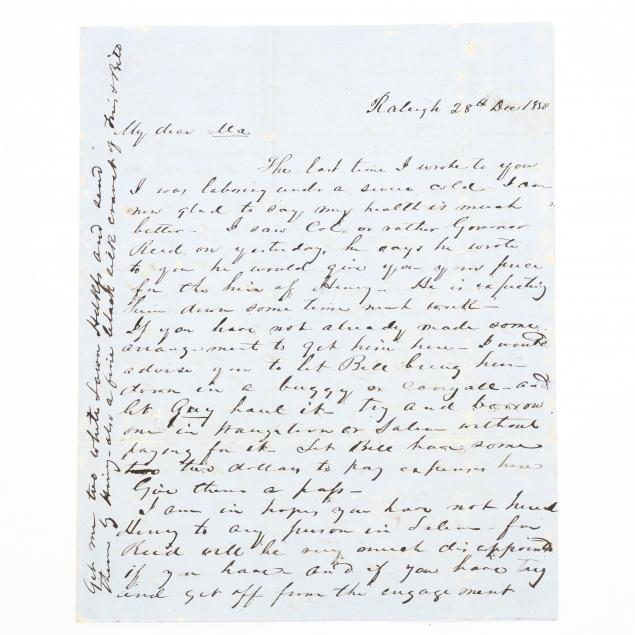 Raleigh 28th Dec 1850
My dear Ma.
The last time I wrote to you
I was laboring under a severe cold. I am
now glad to say my health is much
better - I saw Col. or rather Governor
Reid on yesterday, he says he wrote
to you he would give you your price
for the hire of Henry - He is expecting
him down some time next week -
If you have not already made some
arrangement to get him here - I would
advise you to let Bill bring him
down in a buggy or carryall - and
let Grey haul it - try and borrow
one in Waughtown or Salem without
paying for it. Let Bill have some
two dollars to pay expenses here
Give them a pass -
I am in hopes you have not hired
Henry to any person in Salem - for
Reid will be very much disappointed
if you have and if you have try
and get off from the engagement
Get me two white Lawn Hdkfs and send
them by Henry - also a fine black silk cravat of Fries &